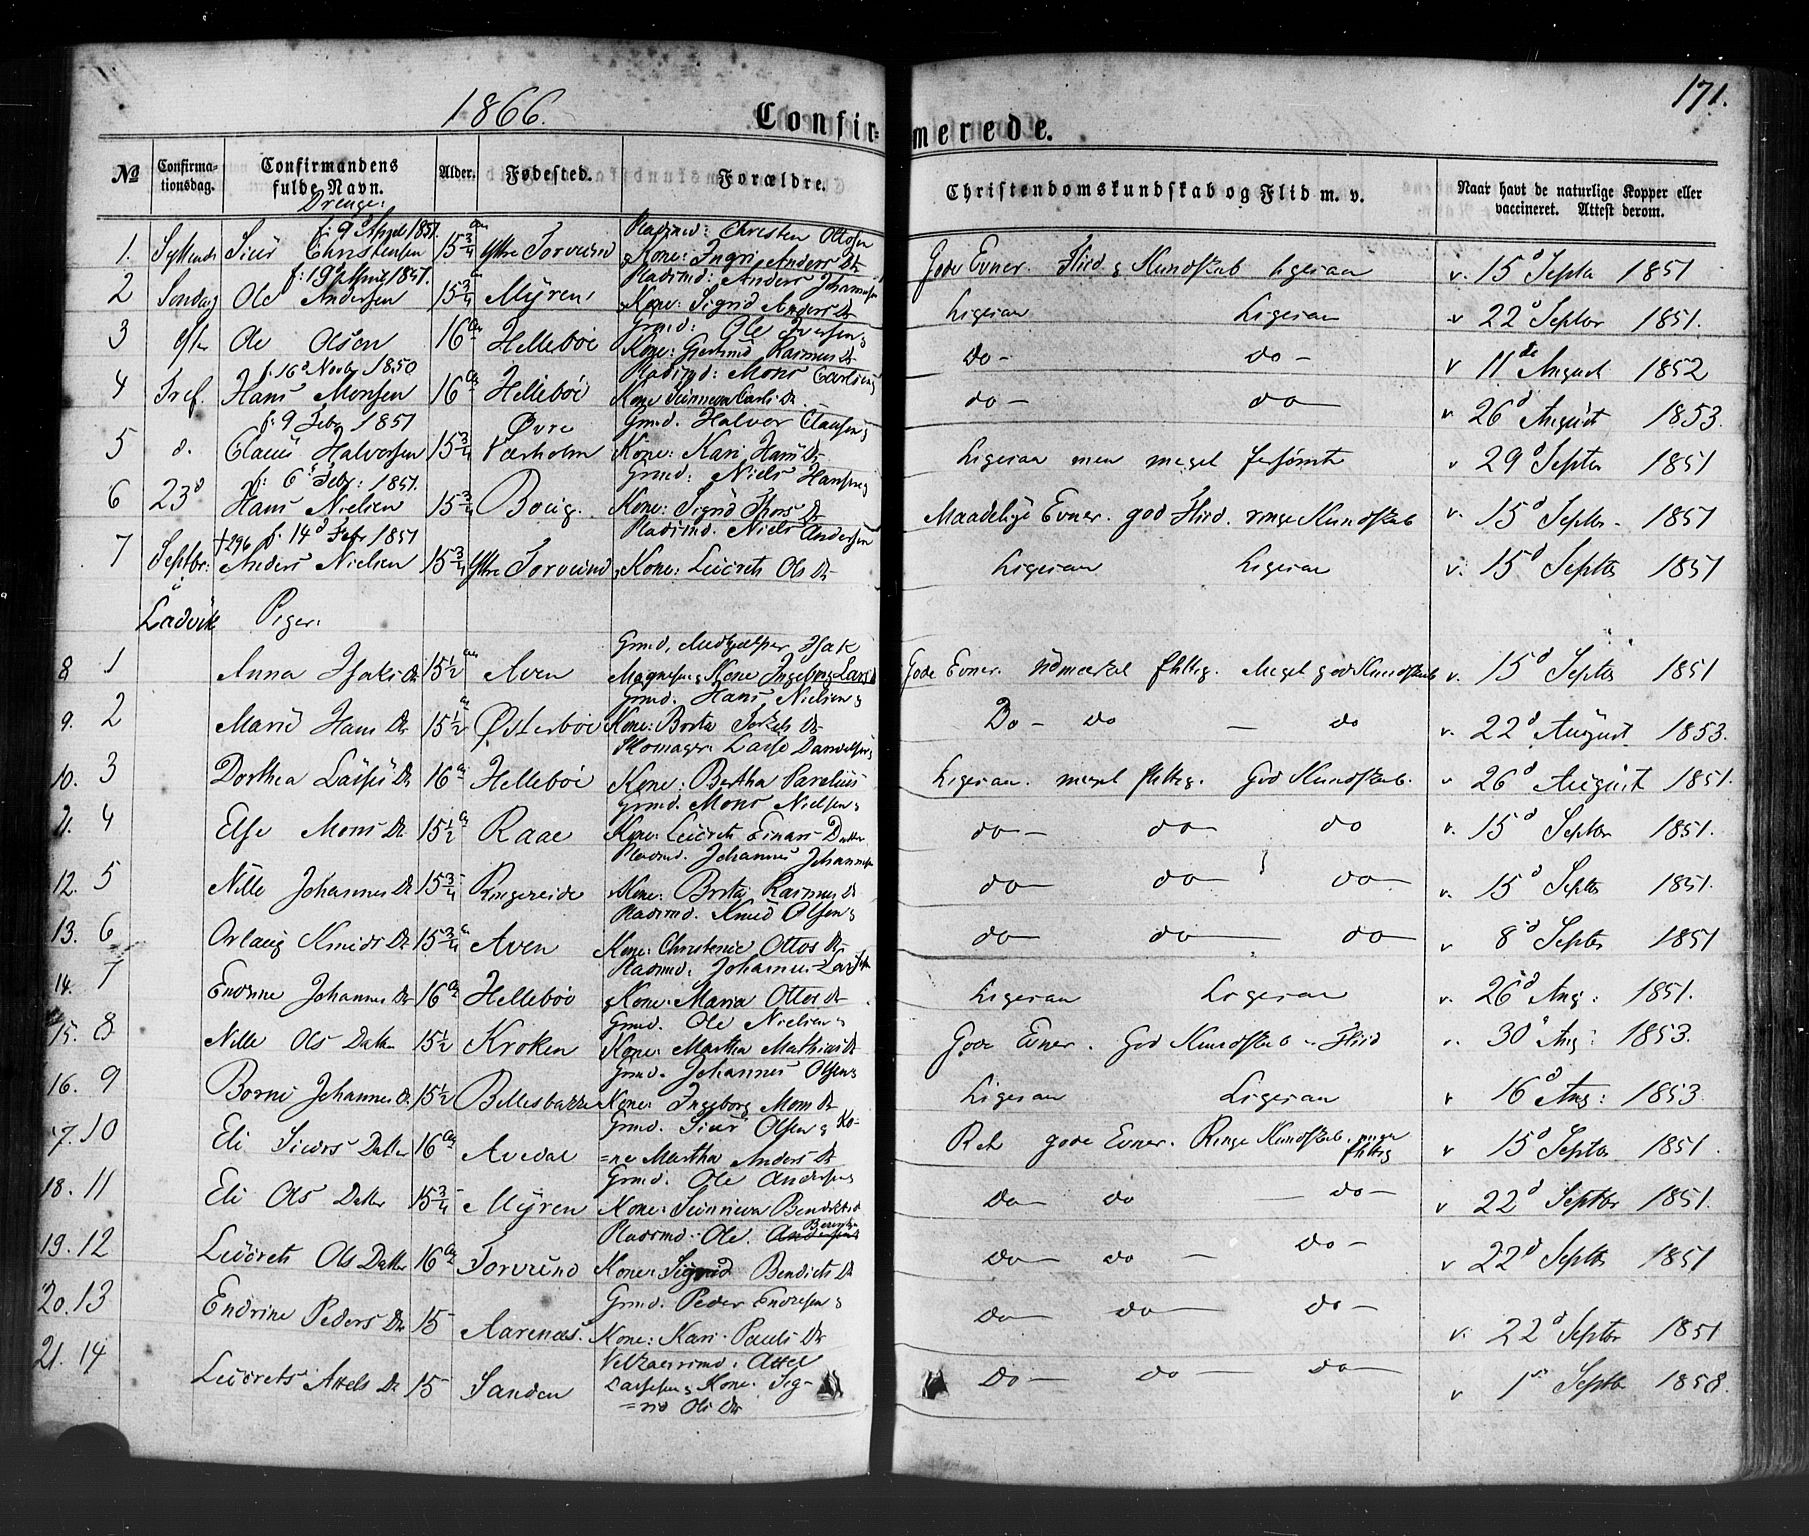 171.
1866. Confirmerede.
№ Confirmationsdag. Confirmandens fulde Navn. Alder. Fødested. Forældre. Christendomskundskab og Flid m. v. Naar havt de naturlige Kopper eller vaccineret. Attest derom.
Drenge:
f: 9d April 1851. Pladsmd: Christen Ottosen
1. Syttende Siur Christensen 15 3/4 Ytre Torvund Kone: Ingri Anders Dr Gode Evner. Flid & Kundskab ligesaa v. 15d Septa 1851
f: 19d April 1851. Pladsmd: Anders Johannesen
2 Søndag Ole Andersen 15 3/4 Myren Kone: Sigrid Anders Dr Ligesaa Ligesaa v 22d Septbr 1851.
Grmd: Ole Iversen &
3 efter Ole Olsen 16 Aar Hellebøe Kone: Gjertrud Rasmus Dr Do - do - v 11de August 1852
f. 16d Novbr 1850 Pladsmd: Mons Carlsen &
4 Tref. Hans Monsen 16 Aar Hellebøe Kone Sunneva Carls Dr. do - do v. 26d August 1853.
f. 9 Febr 1851 Øvre Grmd. Halvor Clausen &
5 d. Claus Halvorsen 15 3/4 Værholm Kone: Kari Hans Dr Ligesaa men meget forsømt v 29d Septbr 1851
f. 6d Febr: 1851. Grmd: Niels Hansen &
6 23d Hans Nielsen 15 3/4 Boug. Kone: Sigrid Thors Dr Maadelige Evner. god Flid. ringe Kundskab v. 15d Septbr. 1851
+296 f. 14d Febr 1851 Pladsmd. Niels Andersen
7 Septbr: Anders Nielsen 15 3/4 Ytre Torvund & Kone: Ludvets Ols Dr Ligesaa Ligesaa v. 15d Septbr 1851
Ladvik Piger:
Grmd, Medhjælper, Isak
8 1 Anna Isaks Dr 15 1/2 Aven Magnesen & Kone Ingeborg Lars D Gode Evner. udmærket flittig. Meget god Kundskab v. 15d Septbr 1851
Grmd. Hans Nielsen &
9. 2 Mari Hans Dr 15 1/2 Østerbøe Kone: Brita Torkels Dr Do - do - do v. 22d August 1853.
Skomager: Lasse Danielsen &
10. 3 Dorthea Lasses Dr 16 Hellebøe Kone: Bertha Parelius Ligesaa. meget flittig. God Kundskab. v 26d August 1851.
Grmd. Mons Nielsen &
11. 4 Else Mons Dr 15 1/2 Raae Kone: Ludvets Einars Datter do - do - do v. 15d Septbr 1851.
Pladsmd. Johannes Johannesen
12. 5 Nille Johannes Dr 15 3/4 Ringereide Kone: Brita Rasmus Dr do - do - do - v. 15d Septbr 1851.
Pladsmd. Knud Olsen &
13. 6 Orlaug Knuds Dr 15 3/4 Aven Kone: Christense Ottos Dr do - do - do - v 8d Septbr 1851.
Pladsmd: Johannes Lassen
14. 7 Endrine Johannes Dr 16 Aar Hellebøe & Kone: Maria Ottos Dr Ligesaa Ligesaa v. 26d Aug: 1851.
Grmd. Ole Nielsen &
15. 8 Nille Ols Datter 15 1/2 Kroken Kone: Martha Mathias Dr Gode Evner. God Kundskab - Flid v. 30d Aug: 1853.
Grmd. Johannes Olsen &
16. 9 Borni Johannes D. 15 1/2 Bellesbakke Kone: Ingeborg Mons Dr Ligesaa Ligesaa v 16d Aug: 1853.
Grmd. Siur Olsen & Ko-
17. 10 Eli Siurs Datter 16 Aar Avedal =ne Martha Anders Dr Ret gode Evner. Ringe Kundskab. flittig v 15d Septbr 1851.
Grmd. Ole Andersen &
18. 11 Eli Ols Datter 15 3/4 Myren Kone: Sunneva Bendikts d Do - do - do - v 22d Septbr 1851.
Pladsmd. Ole
19. 12 Ludvets Ols Datter 16 Aar Torvund Kone: Sigrid Bendicts Dr do - do - do - v 22d Septbr 1851
Grmd. Peder Endresen &
20. 13 Endrine Peders Dr 15 - Aarenæs. Kone: Kari Pauls Dr do - do - do - v. 22d Septbr 1851
Attel
21. 14 Ludvets Attels Dr 15 - Sanden Lassesen & Kone. Sig- Do - do - do - v 1ste Septbr 1858.
=rid Ols Dr